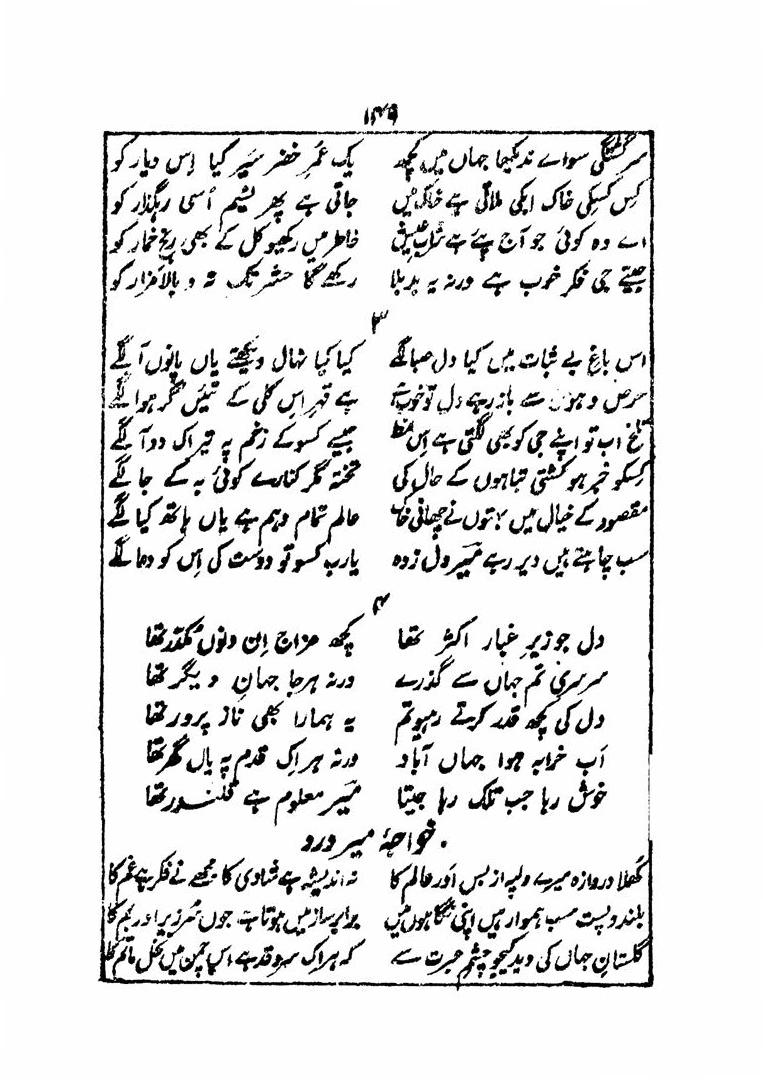 ۱۴۹
سرگشتگی سواے ندیکھا جہاں میں کچھ یک عمر خضر سیر کیا اِس دیار کو
کِس کِسکی خاک ابکی ملاتی ہے خاک میں جاتی ہے پھر نسیم اُسی رہگذار کو
اے وہ کوئی جو آج پئے ہے شراب عیش خاطر میں رکھیو کل کے بھی رنج خمار کو
جیتے جی فکر خوب ہے ورنہ یہ بد بلا رکھے گا حشر تک تہ و بالا مزار کو
۳
اس باغِ بے ثبات میں کیا دل صبا لگے کیا کیا نہال دیکھتے یاں پانوں آ لگے
حرص و ہوس سے باز رہے دل تو خوب ہے ہے قہر اِس کلی کے تئیں گر ہوا لگے
تلخ اب تو اپنے جی کو بھی لگتی ہے اِس نمط جیسے کسو کے زخم پہ تیر اک دو آ لگے
کِسکو خبر ہو کشتی تباہوں کے حال کی تختہ مگر کنارے کوئی بہ کے جا لگے
مقصود کے خیال میں بہتوں نے چھانی خاک عالم تمام وہم ہے یاں ہاتھ کیا لگے
سب چاہتے ہیں دیر رہے میر دل زدہ یارب کسو تو دوست کی اِس کو دعا لگے
۴
دل جو زیرِ غبار اکثر تھا کچھ مزاج اِن دنوں مُکدّر تھا
سرسری تم جہاں سے گذرے ورنہ ہر جا جہانِ دیگر تھا
دل کی کچھ قدر کرتے رہیو تم یہ ہمارا بھی ناز پرور تھا
اَب خرابہ ہوا جہاں آباد ورنہ ہر اِک قدم پہ یاں گھر تھا
خوش رہا جب تلک رہا جیتا میر معلوم ہے قلندر تھا
خواجۂ میر درد
کُھلا دروازہ میرے دلپہ از بس اَور عالم کا نہ اندیشہ ہے شادی کا مجھے نے فکر ہے غم کا
بلند و پست سب ہموار ہیں اپنی نگاہوں میں برابر ساز میں ہوتا ہے جوں سُر زیر اور بم کا
گلستانِ جہاں کی دید کیجو چشمِ عبرت سے کہ ہر اک سرو قد ہے اس چمن میں نخل ماتم کا